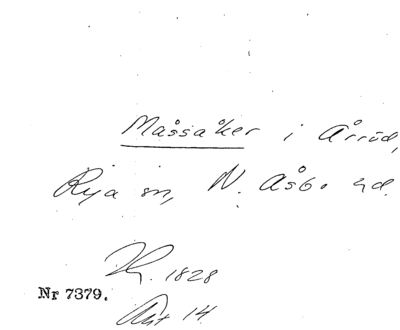 Måssåker i Årröd,
Rya sn, N. Åsbo hd.
1828
Nr 7379.
Akt 14